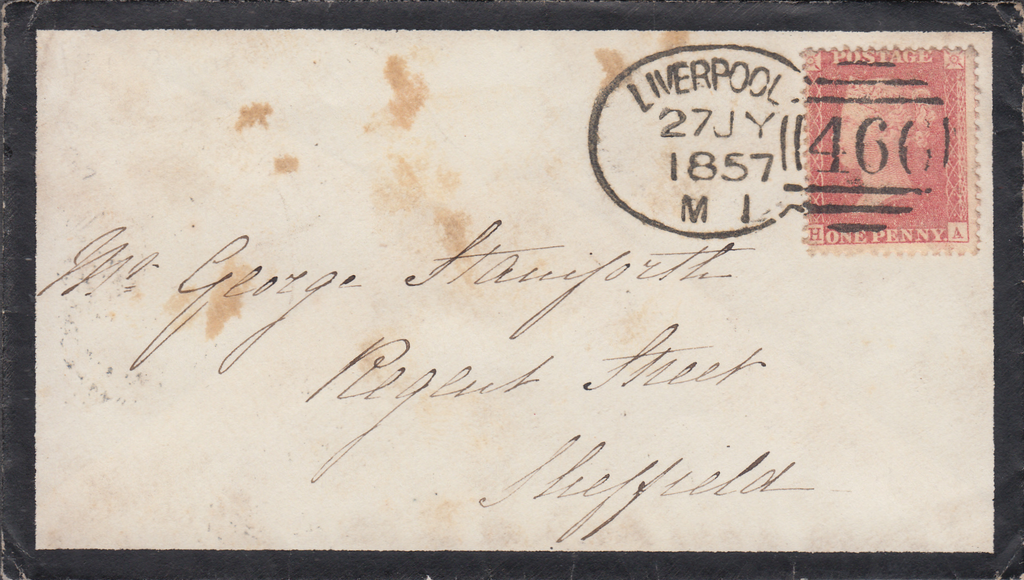 LIVERPOOL
27 JY
1857
M 1
466
POSTAGE
H ONE PENNY A
Mr. George Staniforth
Regent Street
Sheffield